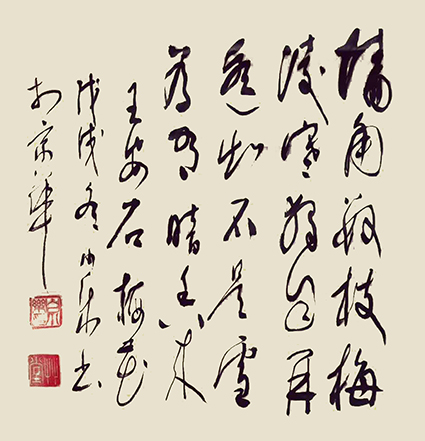 墙角数枝梅
凌寒独自开
遥知不是雪
为有暗香来
王安石梅花
戊戌冬书
於京华